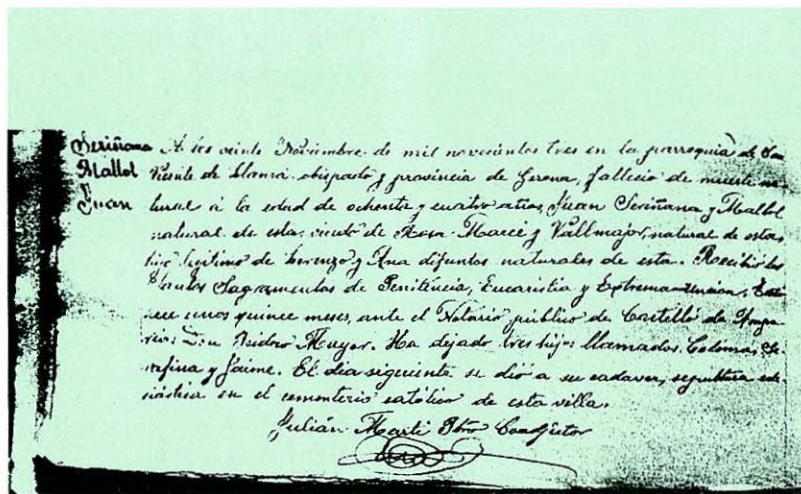 Seriñana
Mallol
Juan
A los veinte Noviembre de mil novecientos tres en la parroquia de San
Vicente de Llansá obispado y provincia de Gerona, falleció de muerte na-
tural á la edad de ochenta y cuatro años, Juan Seriñana y Mallol
natural de esta, viudo de Rosa Maccé y Vallmajor, natural de esta,
hijo legítimo de Lorenzo y Ana difuntos naturales de esta. Recibió los
Santos Sagramentos de Penitencia, Eucaristia y Extrema-uncion,
unos quince meses, ante el Notario público de Castelló de Ampu-
rias Don Isidro Mayor. Ha dejado tres hijos llamados, Coloma, Se-
rafina y Jaime. El dia siguiente se dió a su cadaver, sepultura ecle-
siástica en el cementerio católico de esta villa.
Julián Martí Pbro Coadjutor